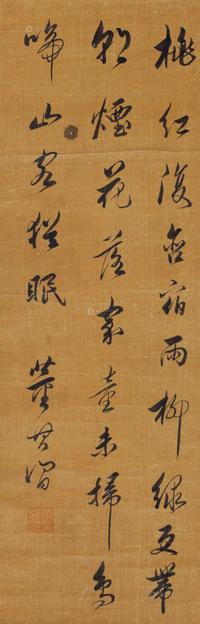 桃红復含宿雨柳绿更带
朝煙花落家童未掃鳥
啼山客猶眠 董其昌